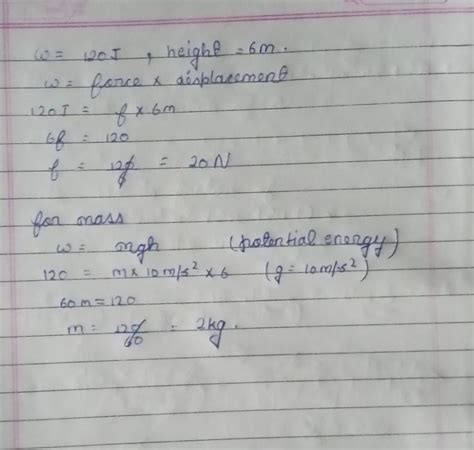 w = 120J , height = 6m.
w = force × displacement
120J = f × 6m
6f = 120
f = 120/6 = 20N
for mass
w = mgh (potential energy)
120 = m × 10m/s² × 6 (g = 10m/s²)
60m = 120
m = 120/60 = 2kg.